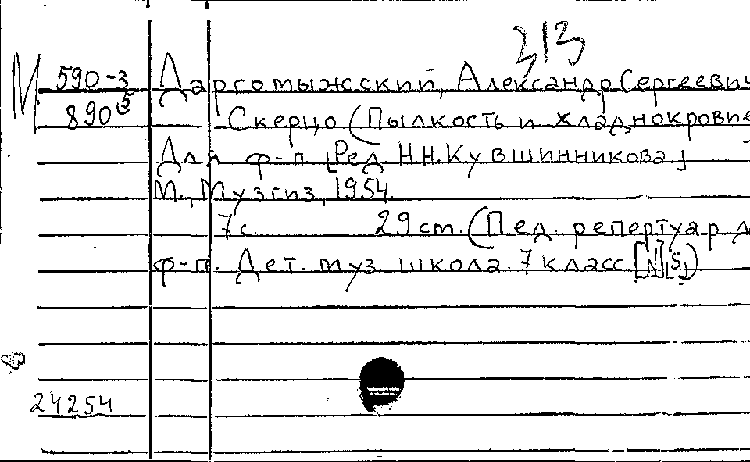 313
М 590-3 Даргомыжский, Александр Сергеевич
890 Скерцо (Пылкость и хладнокровие
Для ф-п. [Ред. Н.Н. Кувшинникова]
М., Музгиз, 1954.
7 с. 29 см. (Пед. репертуар д
ф-п. Дет. муз. школа. 7 класс [N]5)
24254